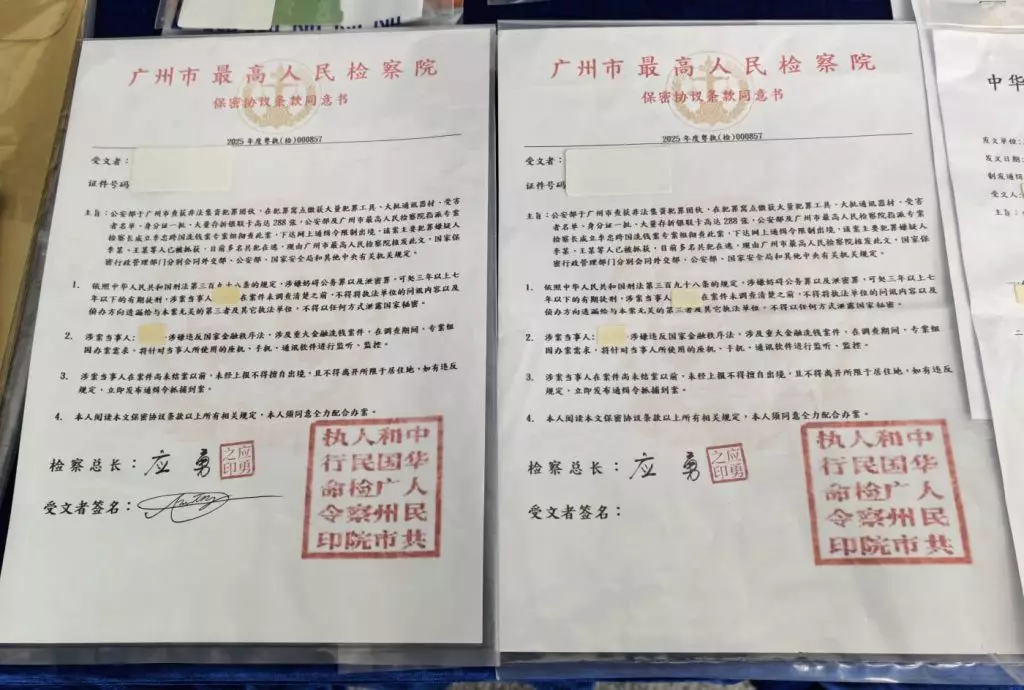 广州市最高人民检察院
保密协议条款同意书
2025年度粤执(检)000857
受文者：
证件号码
主旨：公安部于广州市查获非法集资犯罪团伙，在犯罪窝点缴获大量犯罪工具、大批通讯器材、受害
者名单、身份证一批，大量存折银联卡高达288张，公安部及广州市最高人民检院指派专案
检察长成立李忠跨国洗钱案专案组彻查此案，下达网上通缉令限制出境，该案主要犯罪嫌疑人
李某、王某等人已被抓获，目前多名共犯在逃，现由广州市最高人民检院核发此文，国家保
密行政管理部门分别会同外交部、公安部、国家安全局和其他中央有关机关规定。
1. 依照中华人民共和国刑法第三百九十八条的规定，涉嫌妨碍公务罪以及泄密罪，可处三年以上七
年以下的有期徒刑，涉案当事人
在案件未调查清楚之前，不得将执法单位的问讯内容以及
侦办方向透漏给与本案无关的第三者及其它执法单位，不得以任何方式泄露国家秘密。
2. 涉案当事人：
涉嫌违反国家金融秩序法，涉及重大金融洗钱案件，在调查期间，专案组
因办案需求，将针对当事人所使用的座机、手机、通讯软件进行监听、监控。
3. 涉案当事人在案件尚未结案以前，未经上报不得擅自出境，且不得离开所限于居住地，如有违反
规定，立即发布通缉令抓捕到案。
4. 本人阅读本文保密协议条款以上所有相关规定，本人须同意全力配合办案。
检察总长：应勇
应勇之印
受文者签名：
中华人民共和国广州市人民检察院执行命令印
广州市最高人民检察院
保密协议条款同意书
2025年度粤执(检)000857
受文者：
证件号码
主旨：公安部于广州市查获非法集资犯罪团伙，在犯罪窝点缴获大量犯罪工具、大批通讯器材、受害
者名单、身份证一批，大量存折银联卡高达288张，公安部及广州市最高人民检院指派专案
检察长成立李忠跨国洗钱案专案组彻查此案，下达网上通缉令限制出境，该案主要犯罪嫌疑人
李某、王某等人已被抓获，目前多名共犯在逃，现由广州市最高人民检院核发此文，国家保
密行政管理部门分别会同外交部、公安部、国家安全局和其他中央有关机关规定。
1. 依照中华人民共和国刑法第三百九十八条的规定，涉嫌妨碍公务罪以及泄密罪，可处三年以上七
年以下的有期徒刑，涉案当事人
在案件未调查清楚之前，不得将执法单位的问讯内容以及
侦办方向透漏给与本案无关的第三者及其它执法单位，不得以任何方式泄露国家秘密。
2. 涉案当事人：
涉嫌违反国家金融秩序法，涉及重大金融洗钱案件，在调查期间，专案组
因办案需求，将针对当事人所使用的座机、手机、通讯软件进行监听、监控。
3. 涉案当事人在案件尚未结案以前，未经上报不得擅自出境，且不得离开所限于居住地，如有违反
规定，立即发布通缉令抓捕到案。
4. 本人阅读本文保密协议条款以上所有相关规定，本人须同意全力配合办案。
检察总长：应勇
应勇之印
受文者签名：
中华人民共和国广州市人民检察院执行命令印
中华
发文单位:
发文日期:
制发通缉
受文人: